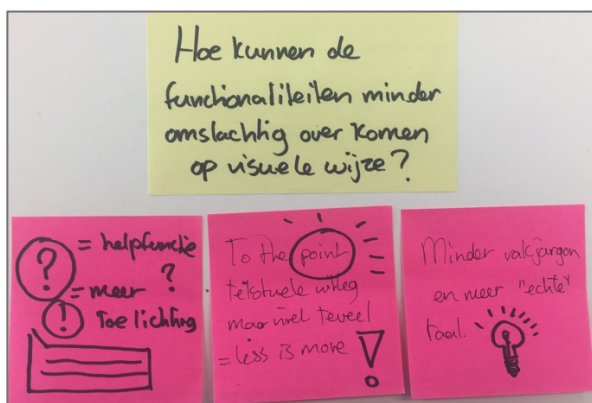 Hoe kunnen de
functionaliteiten minder
omslachtig over komen
op visuele wijze?
? = helpfunctie
= meer ?
! Toelichting
To the point
tekstuele uitleg
maar niet teveel
= less is more !
Minder vakjargon
en meer "echte"
taal.